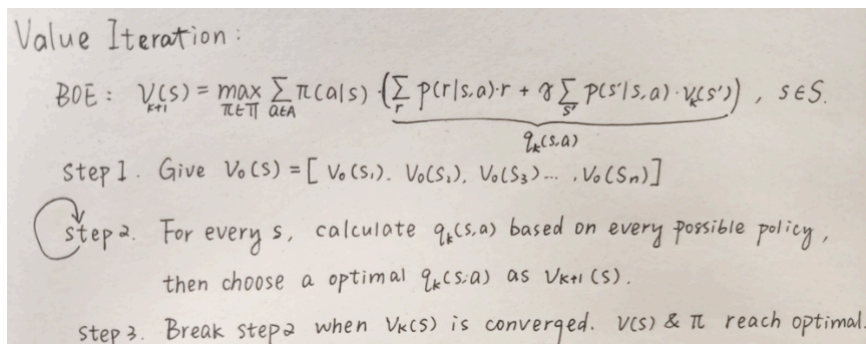 Value Iteration:
BOE: V_{k+1}(s) = max_{π∈Π} Σ_{a∈A} π(a|s) · (Σ_r p(r|s,a)·r + γ Σ_{s'} p(s'|s,a)·v_k(s')), s∈S.
q_k(s,a)
step 1. Give V₀(s) = [ V₀(s₁). V₀(s₂), V₀(s₃)... , V₀(sₙ)]
step 2. For every s, calculate q_k(s,a) based on every possible policy,
then choose a optimal q_k(s,a) as V_{k+1}(s).
step 3. Break step2 when V_k(s) is converged. V(s) & π reach optimal.